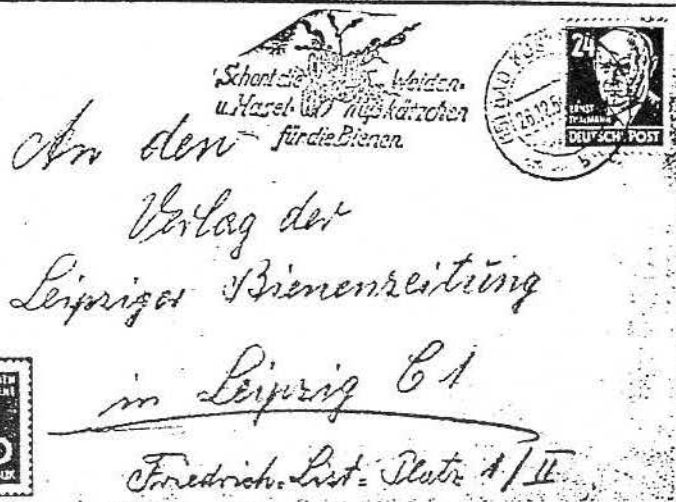 Schont die Weiden-
u. Hasel-
nußkätzchen
für die Bienen
24
ERNST
THÄLMANN
DEUTSCHE POST
BAD
26.12.5
An den
Verlag der
Leipziger Bienenzeitung
in Leipzig C 1
Friedrich-List-Platz 1/II